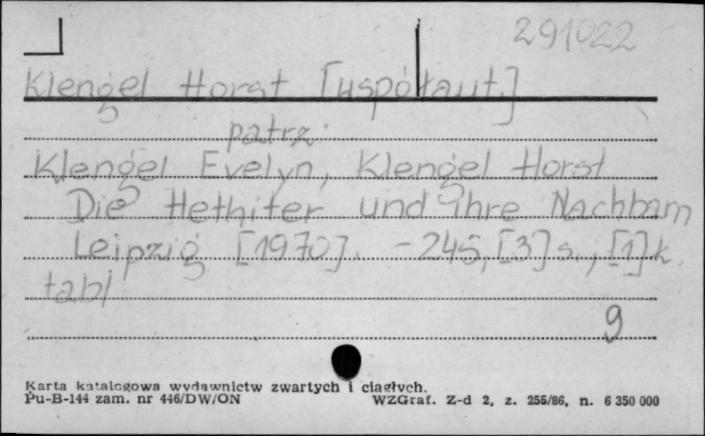 291022
Klengel Horst [współaut.]
patrz:
Klengel Evelyn, Klengel Horst
Die Hethiter und ihre Nachbarn
Leipzig [1970]. - 245, [3] s., [1] k.
tabl
9
Karta katalogowa wydawnictw zwartych i ciągłych.
Pu-B-144 zam. nr 446/DW/ON WZGraf. Z-d 2, z. 255/86, n. 6 350 000